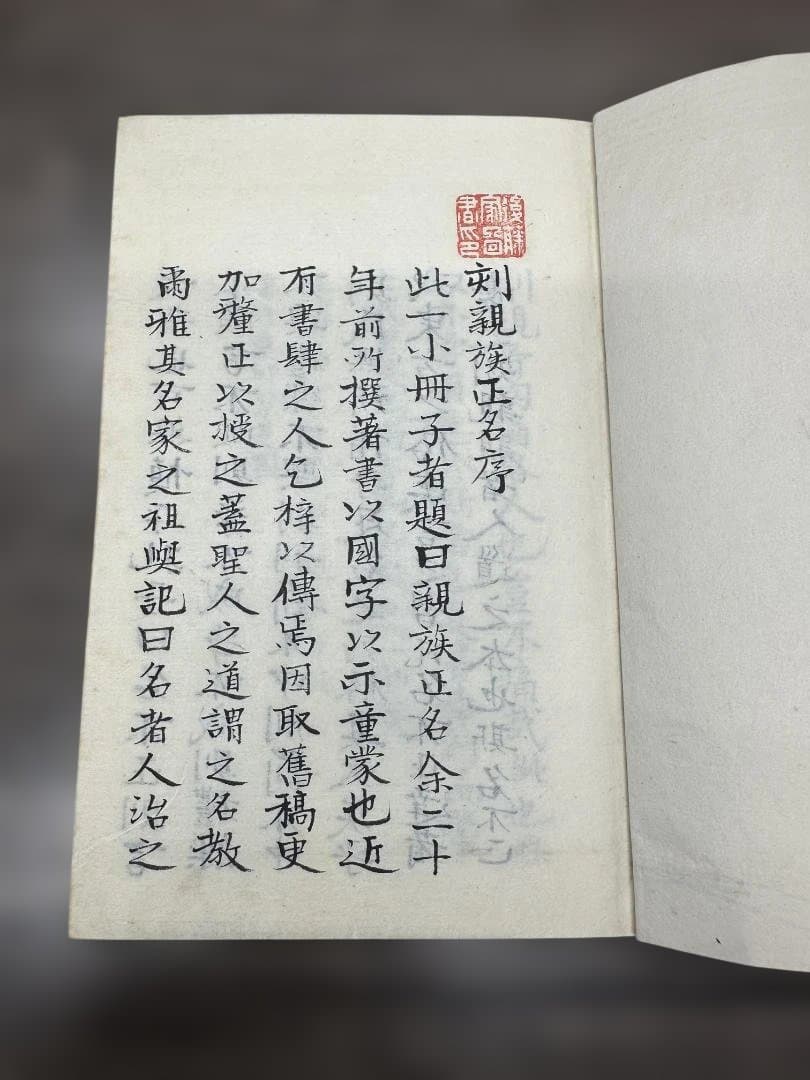 刻親族正名序
此一小冊子者題曰親族正名余二十
年前所撰著書以國字以示童蒙也近
有書肆之人乞梓以傳焉因取舊稿更
加釐正以授之蓋聖人之道謂之名教
爾雅其名家之祖與記曰名者人治之